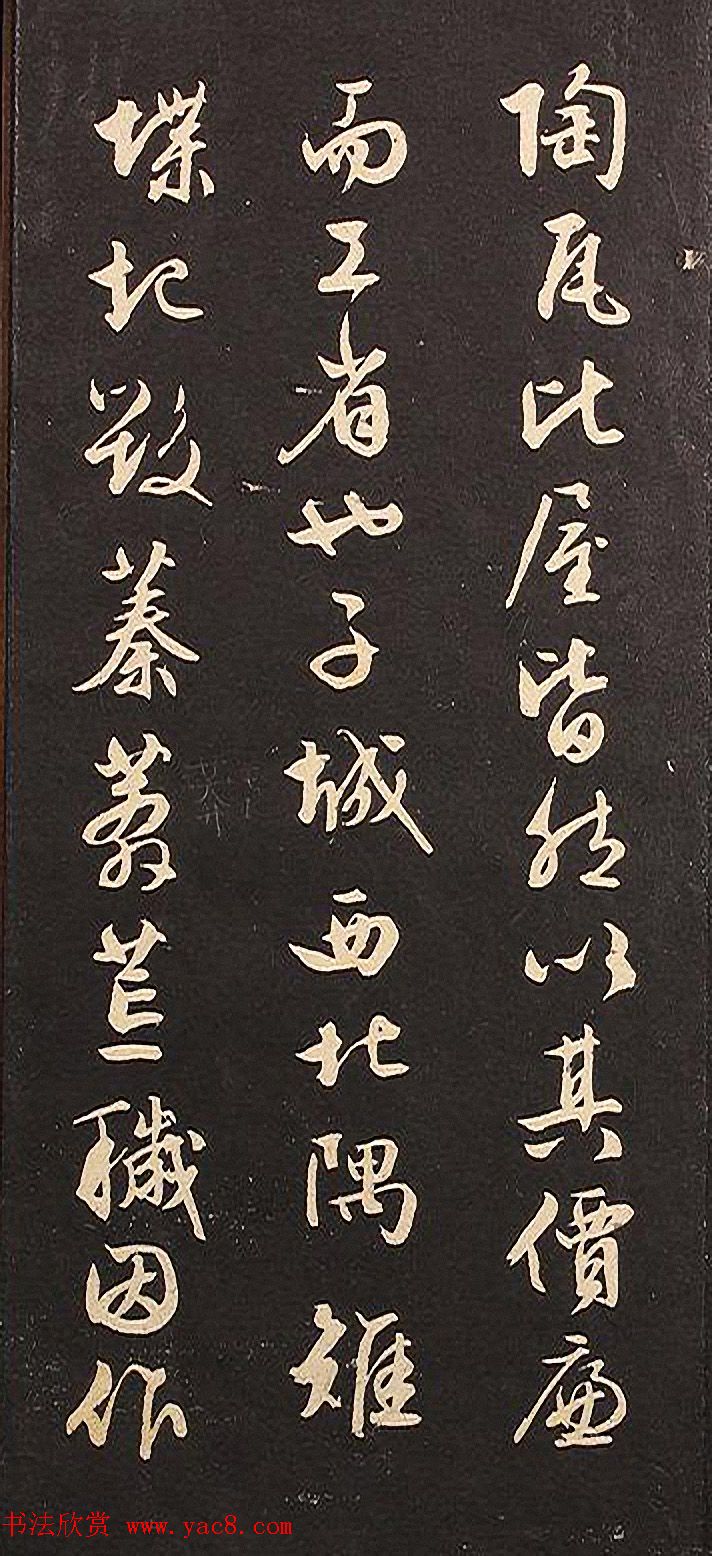 陶瓦比屋皆然以其價廉
而工省也子城西北隅雉
堞圮毀蓁莽荒穢因作
书法欣赏 www.yac8.com